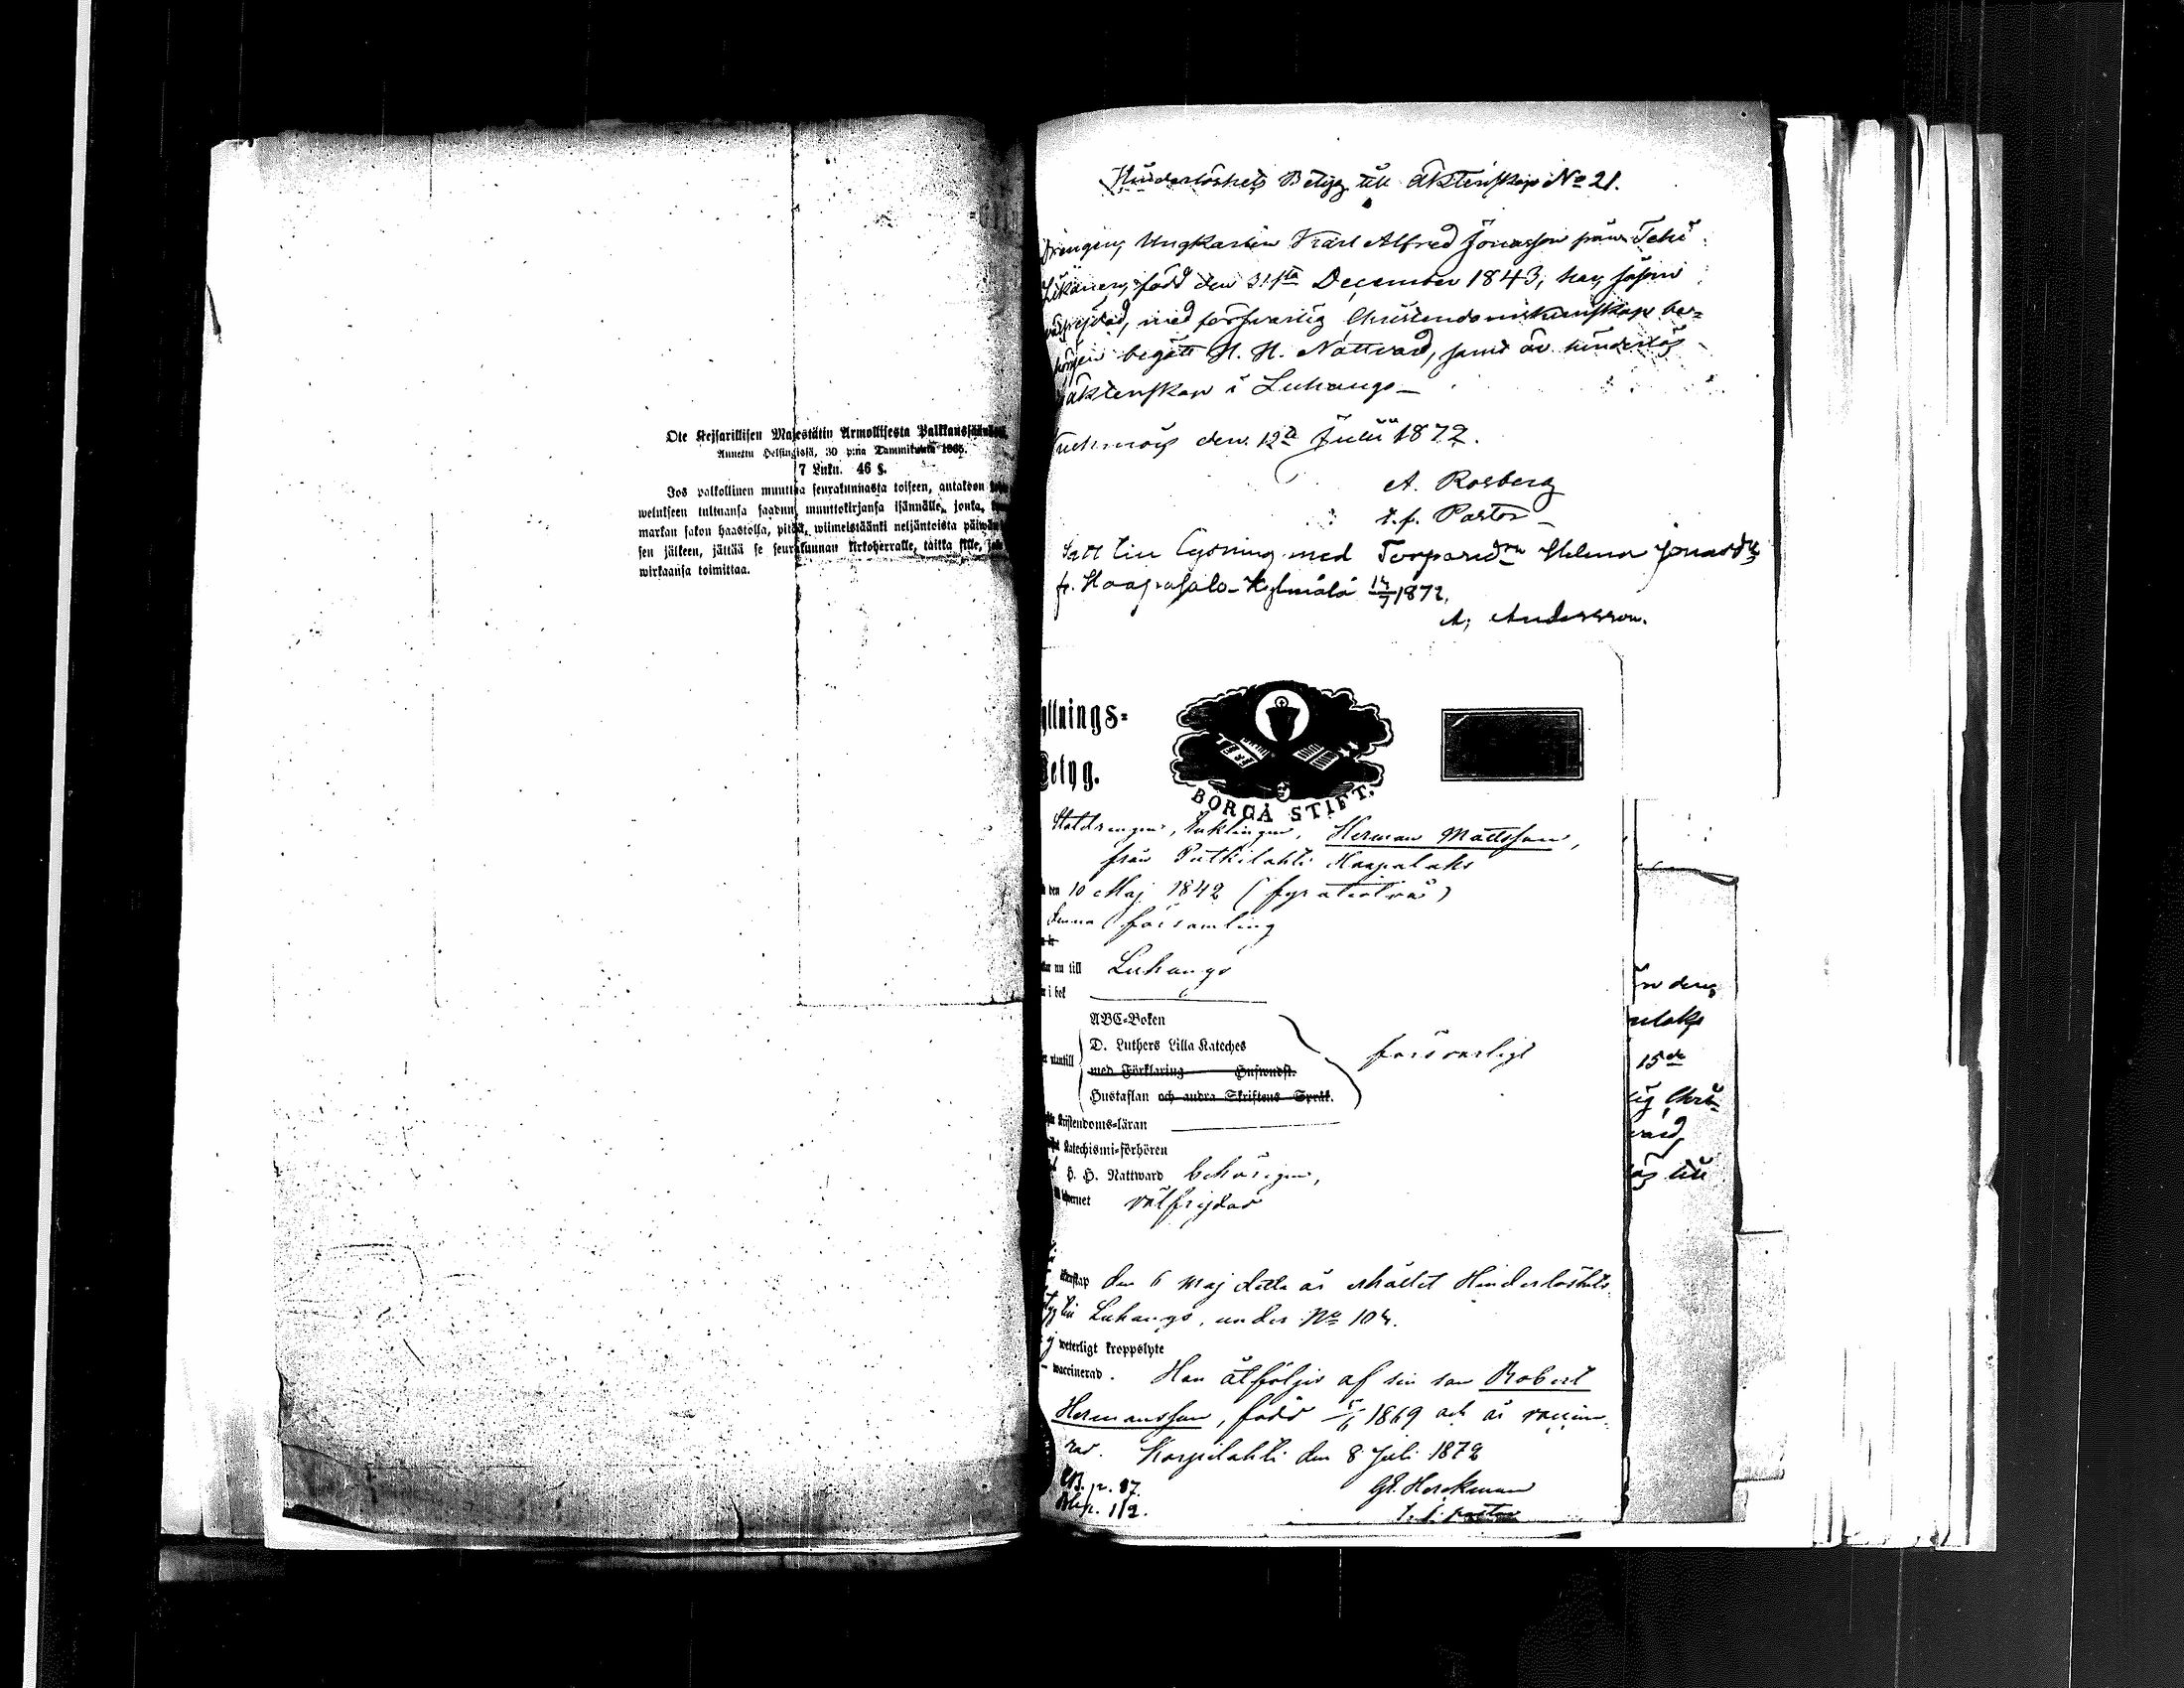 Ote Keisarillisen Majestätin Armollisesta Palkkaussäännöstä
Annettu Helsingissä, 30 p:nä Tammikuuta 1865.
7 Luku. 46 §.
Jos palkollinen muuttaa seurakunnasta toiseen, antakoon
welukseen tultuansa saadun muuttokirjansa isännälle, jonka,
markan sakon haastolla, pitää, wiimeistäänki neljäntoista päiwän
sen jälkeen, jättää se seurakunnan kirkoherralle, taikka sille,
wirkaansa toimittaa.
Hinderlöshets Betyg till äktenskap No 21.
Drengen, Ungkarlen Karl Alfred Jonasson från Tehi
född den 31sta December 1843, har, såsom
välfrejdad, med försvarlig Christendomskunskap be-
hörigen begått H. H. Nattvard, samt är hinderlös
äktenskap i Luhango
den 12te Julii 1872.
A. Rosberg
t. f. Pastor
till lysning med Torparedrn Helena Jonasdr
fr. Haapasalo-Kylmälä 14/7 1872.
A. Andersson.
yttnings-
Betyg.
BORGÅ STIFT.
Statdrengen, Enklingen, Herman Mattsson,
från Putkilahti Haapalaks
den 10 Maj 1842 (fyratiotvå)
denna församling
nu till Luhango
i bok
ABC-Boken
D. Luthers Lilla Kateches
utantill försvarligt
med Förklaring Huswudst.
Hustaflan och andra Skriftens Språk.
Kristendoms-läran
Katechismi-förhören
H. H. Nattward behörigen,
välfrejdad
den 6 Maj detta år erhållit Hinderlöshets
till Luhango, under No 104.
weterligt kroppslyte
waccinerad. Han åtföljes af sin son Robert
Hermansson, född 1869 och är vaccine-
rad. Korpilahti den 8 Juli 1872
p. 87.
p. 112.
t. f. pastor
15de